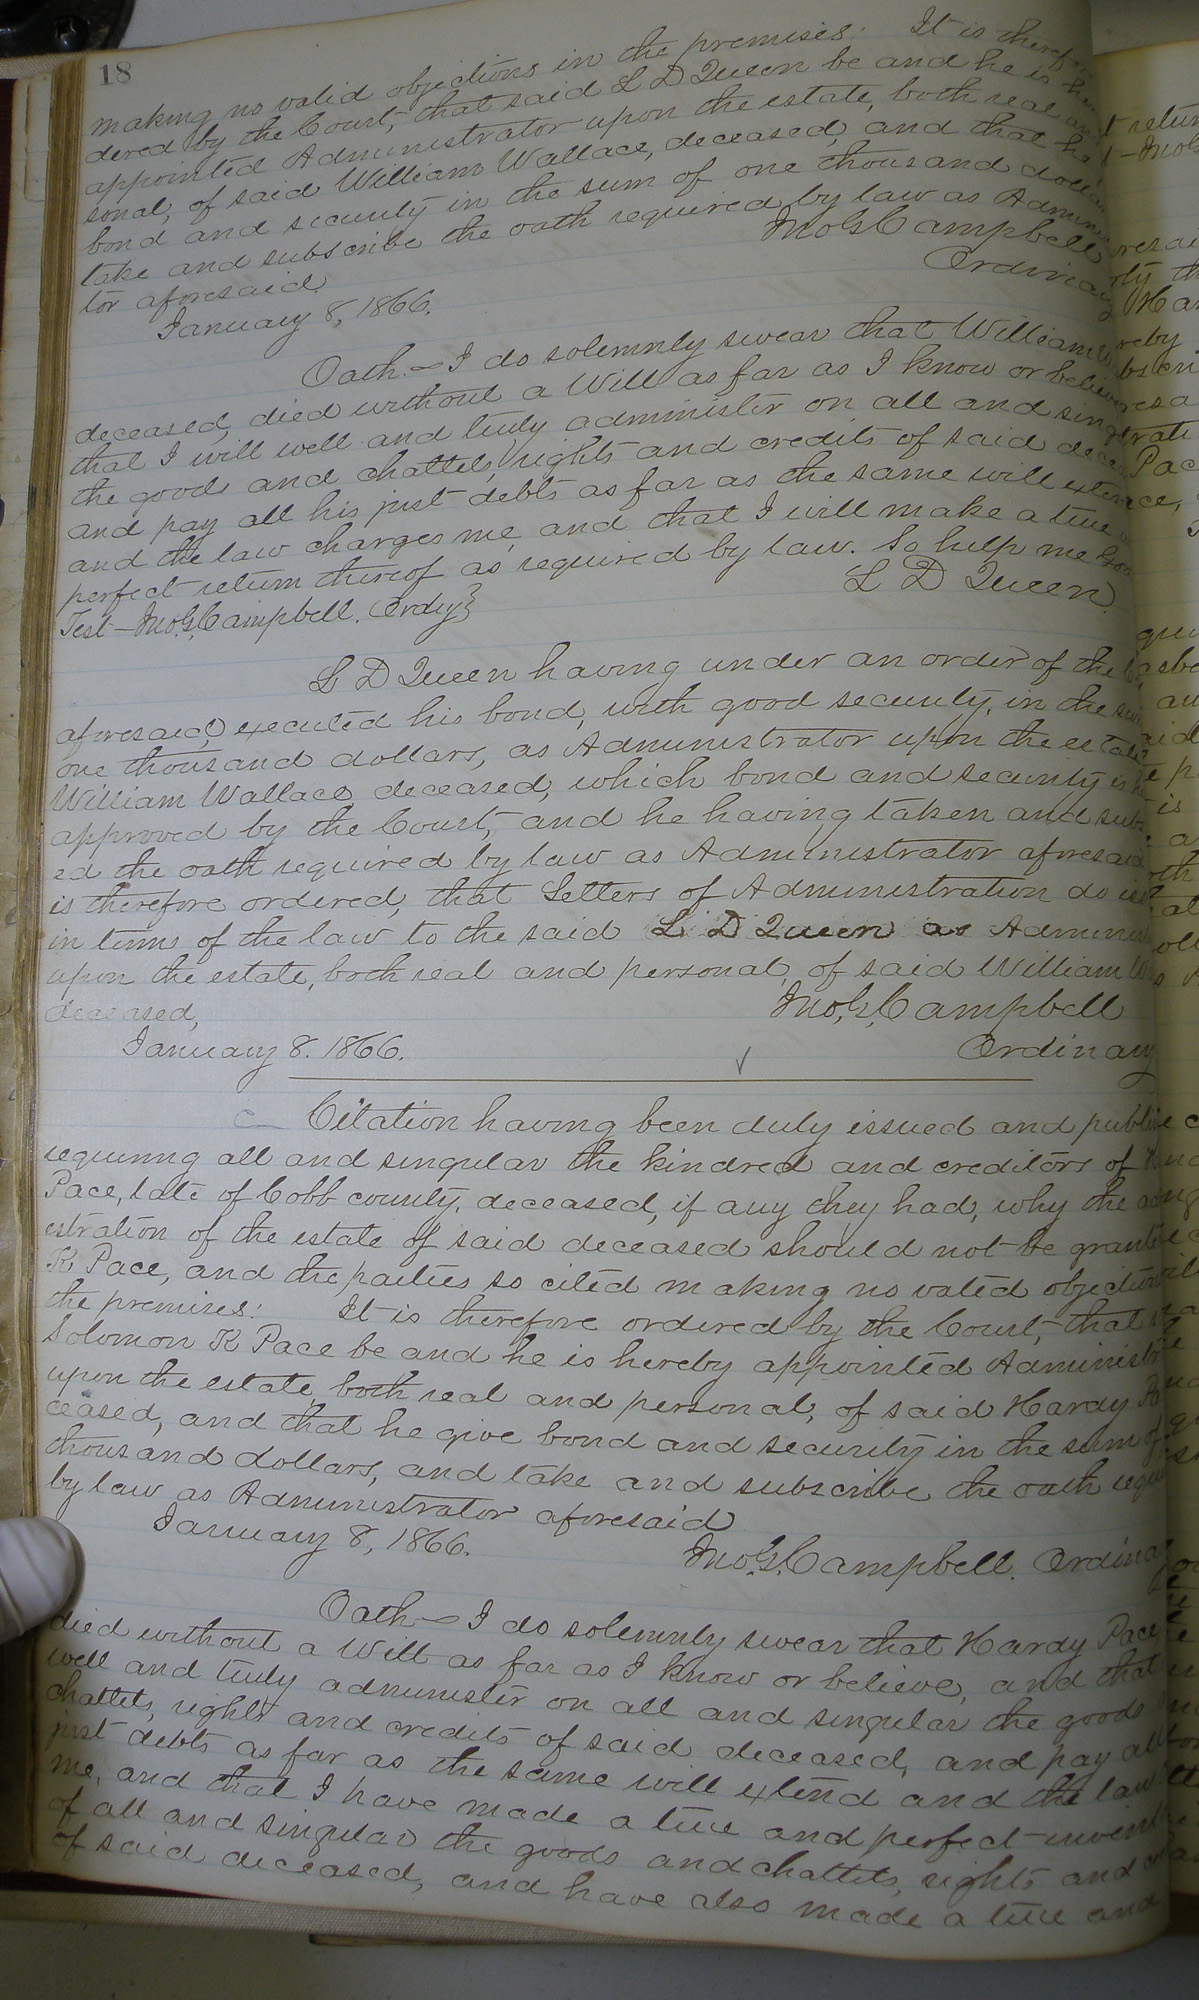 18
making no valid objections in the premises: It is therefore
dered by the Court, that said L D Queen be and he is
appointed Administrator upon the estate, both real and
sonal, of said William Wallace, deceased, and that he
bond and security in the sum of one thousand dollars
take and subscribe the oath required by law as Admini
tor aforesaid.
Jno. G. Campbell
January 8, 1866.
Ordinary
Oath.— I do solemnly swear that William
deceased, died without a Will as far as I know or believe
that I will well and truly administer on all and sing
the goods and chattels, rights and credits of said dece
and pay all his just debts as far as the same will exten
and the law charges me, and that I will make a true
perfect return thereof as required by law. So help me God
L D Queen.
Test—Jno. G. Campbell. Ordy}
L D Queen having under an order of the
aforesaid, executed his bond, with good security, in the su
one thousand dollars, as Administrator upon the estate
William Wallace deceased, which bond and security is
approved by the Court, and he having taken and subs
ed the oath required by law as Administrator aforesaid
is therefore ordered, that Letters of Administration do
in terms of the law to the said L. D Queen as Admini
upon the estate, both real and personal, of said William
deceased,
Jno, G, Campbell
January 8. 1866.
Ordinary
Citation having been duly issued and publi
requiring all and singular the kindred and creditors of
Pace, late of Cobb county, deceased, if any they had, why the
istration of the estate of said deceased should not be grant
K Pace, and the parties so cited making no valid objection
the premises: It is therefore ordered by the Court, that
Solomon K Pace be and he is hereby appointed Administr
upon the estate, both real and personal, of said Hardy Pa
ceased, and that he give bond and security in the sum of
thousand dollars, and take and subscribe the oath requ
by law as Administrator aforesaid
January 8, 1866.
Jno. G. Campbell. Ordina
Oath— I do solemnly swear that Hardy Pace,
died without a Will as far as I know or believe, and that
well and truly administer on all and singular the goods
chattels, rights and credits of said deceased, and pay all
just debts as far as the same will extend and the law
me, and that I have made a true and perfect invent
of all and singular the goods and chattels, rights and
of said deceased, and have also made a true and